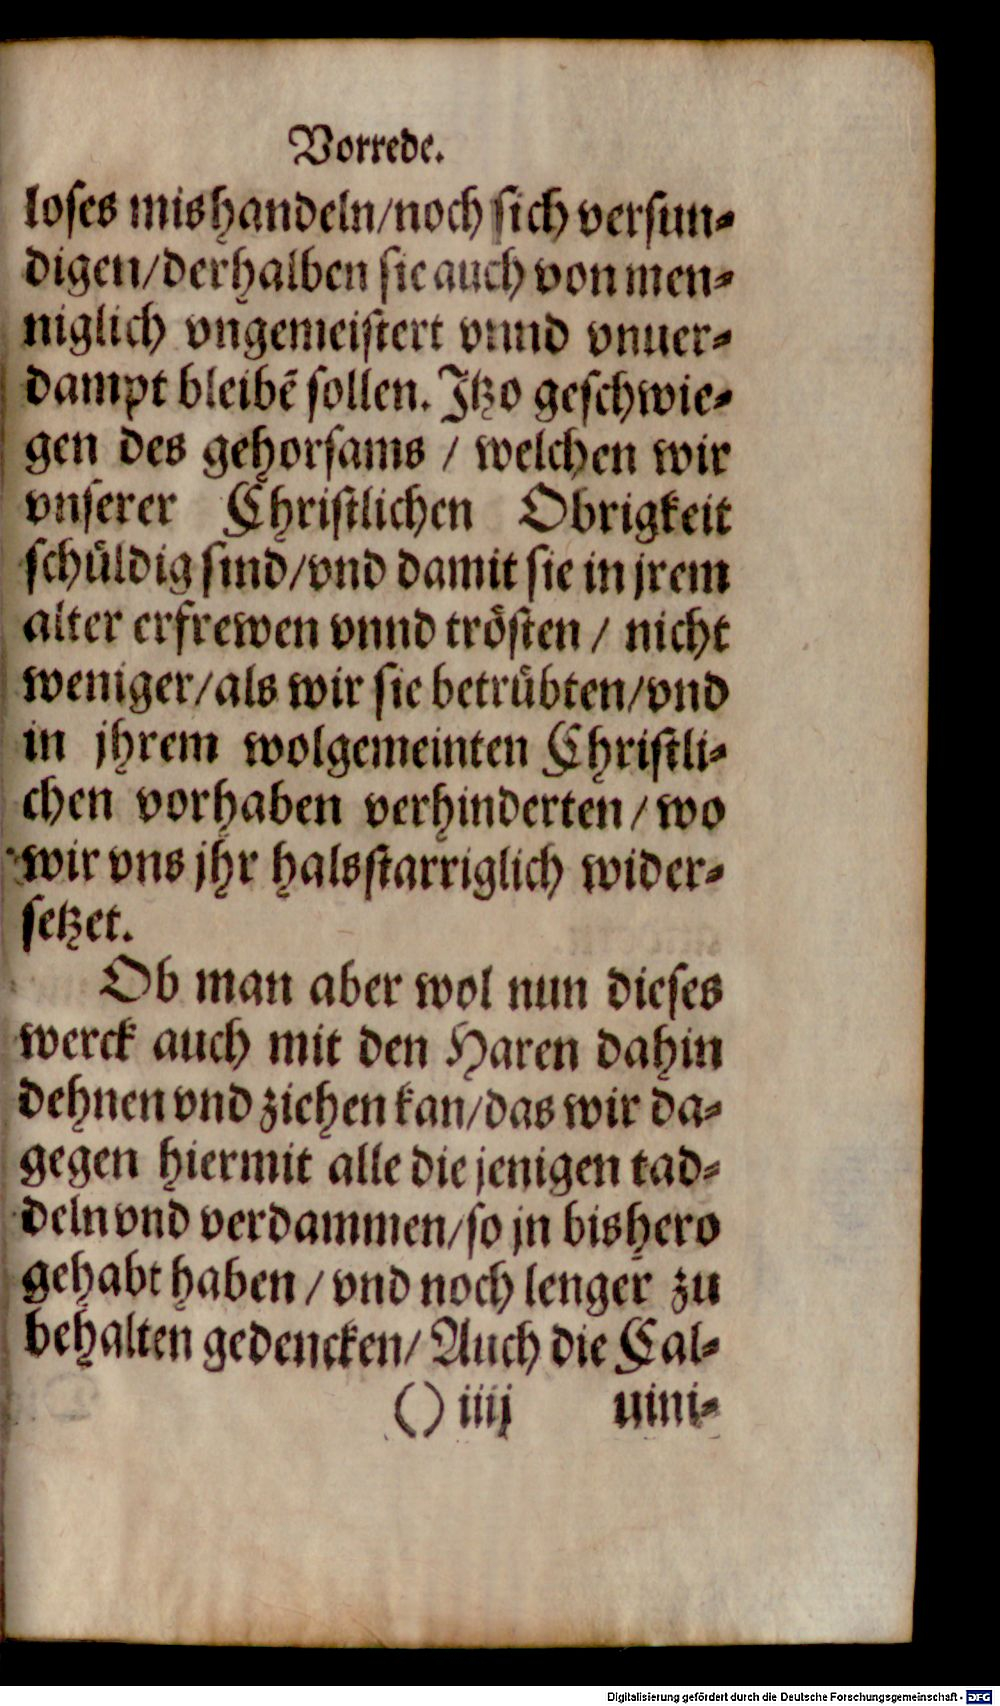 Vorrede.
loses mishandeln/noch sich versun⸗
digen/derhalben sie auch von men⸗
niglich vngemeistert vnnd vnuer⸗
dampt bleibẽ sollen. Jtzo geschwie⸗
gen des gehorsams / welchen wir
vnserer Christlichen Obrigkeit
schüldig sind/vnd damit sie in jrem
alter erfrewen vnnd trösten / nicht
weniger/als wir sie betrübten/vnd
in jhrem wolgemeinten Christli⸗
chen vorhaben verhinderten/wo
wir vns jhr halsstarriglich wider⸗
setzet.
Ob man aber wol nun dieses
werck auch mit den Haren dahin
dehnen vnd ziehen kan/das wir da⸗
gegen hiermit alle die jenigen tad⸗
deln vnd verdammen/so jn bishero
gehabt haben / vnd noch lenger zu
behalten gedencken/ Auch die Cal⸗
() iiij uini⸗
Digitalisierung gefördert durch die Deutsche Forschungsgemeinschaft - DFG